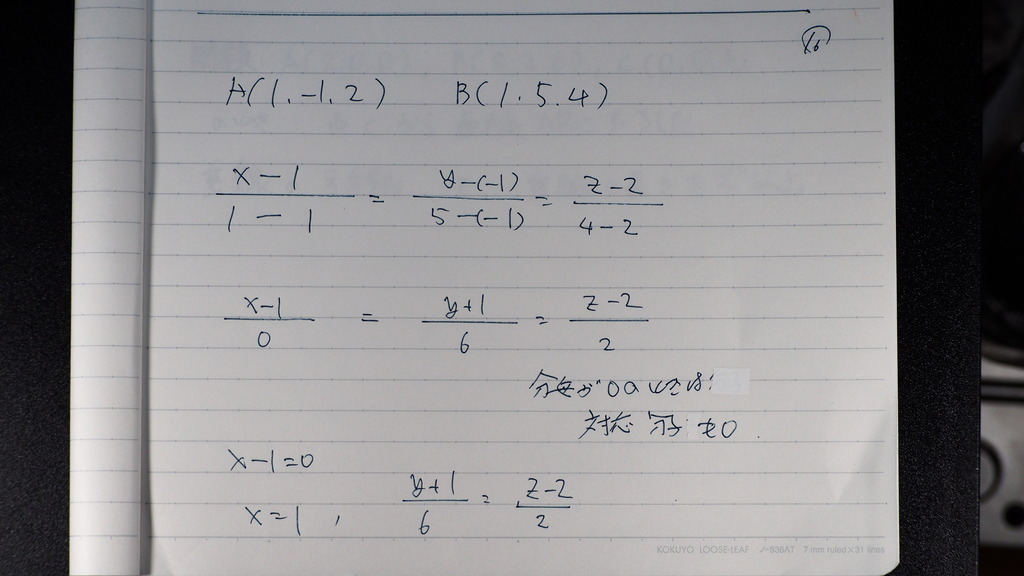 16
A(1.-1.2) B(1.5.4)
x-1/1-1 = y-(-1)/5-(-1) = z-2/4-2
x-1/0 = y+1/6 = z-2/2
分母が0のときは
対応 分子も0.
x-1=0
x=1, y+1/6 = z-2/2
KOKUYO LOOSE-LEAF ノ-836AT 7 mm ruled×31 lines